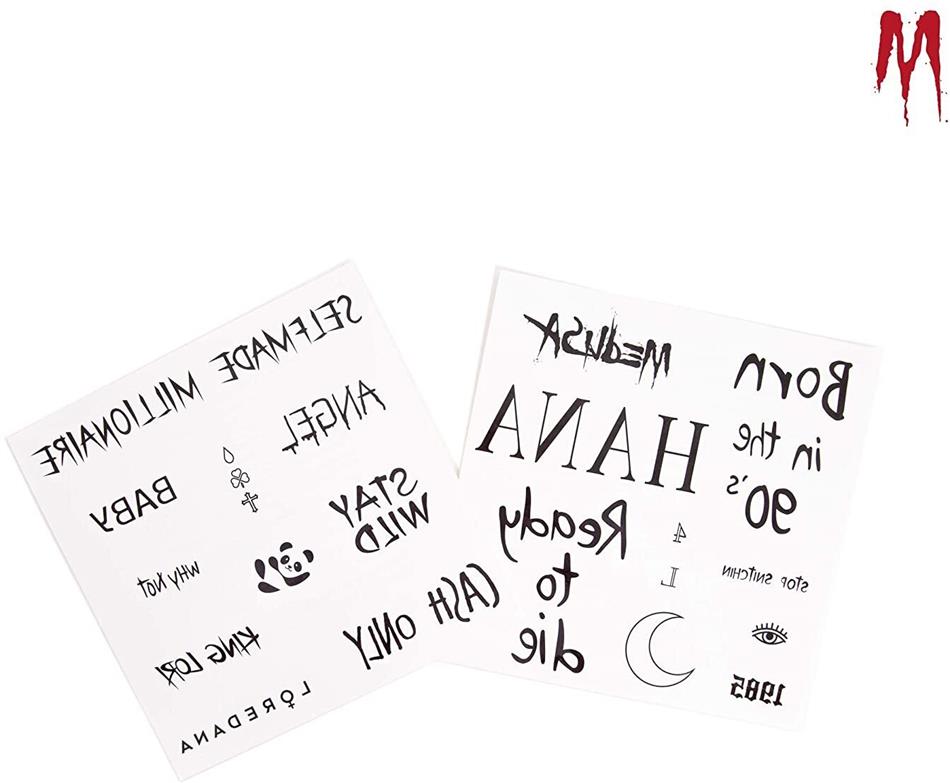 M
SELFMADE MILLIONAIRE
ANGEL
BABY
STAY
WILD
WHY NOT
CASH ONLY
KING LORI
LOREDANA
MEDUSA
Born
in the
90's
HANA
Ready
to
die
4
L
STOP SNITCHIN
1985